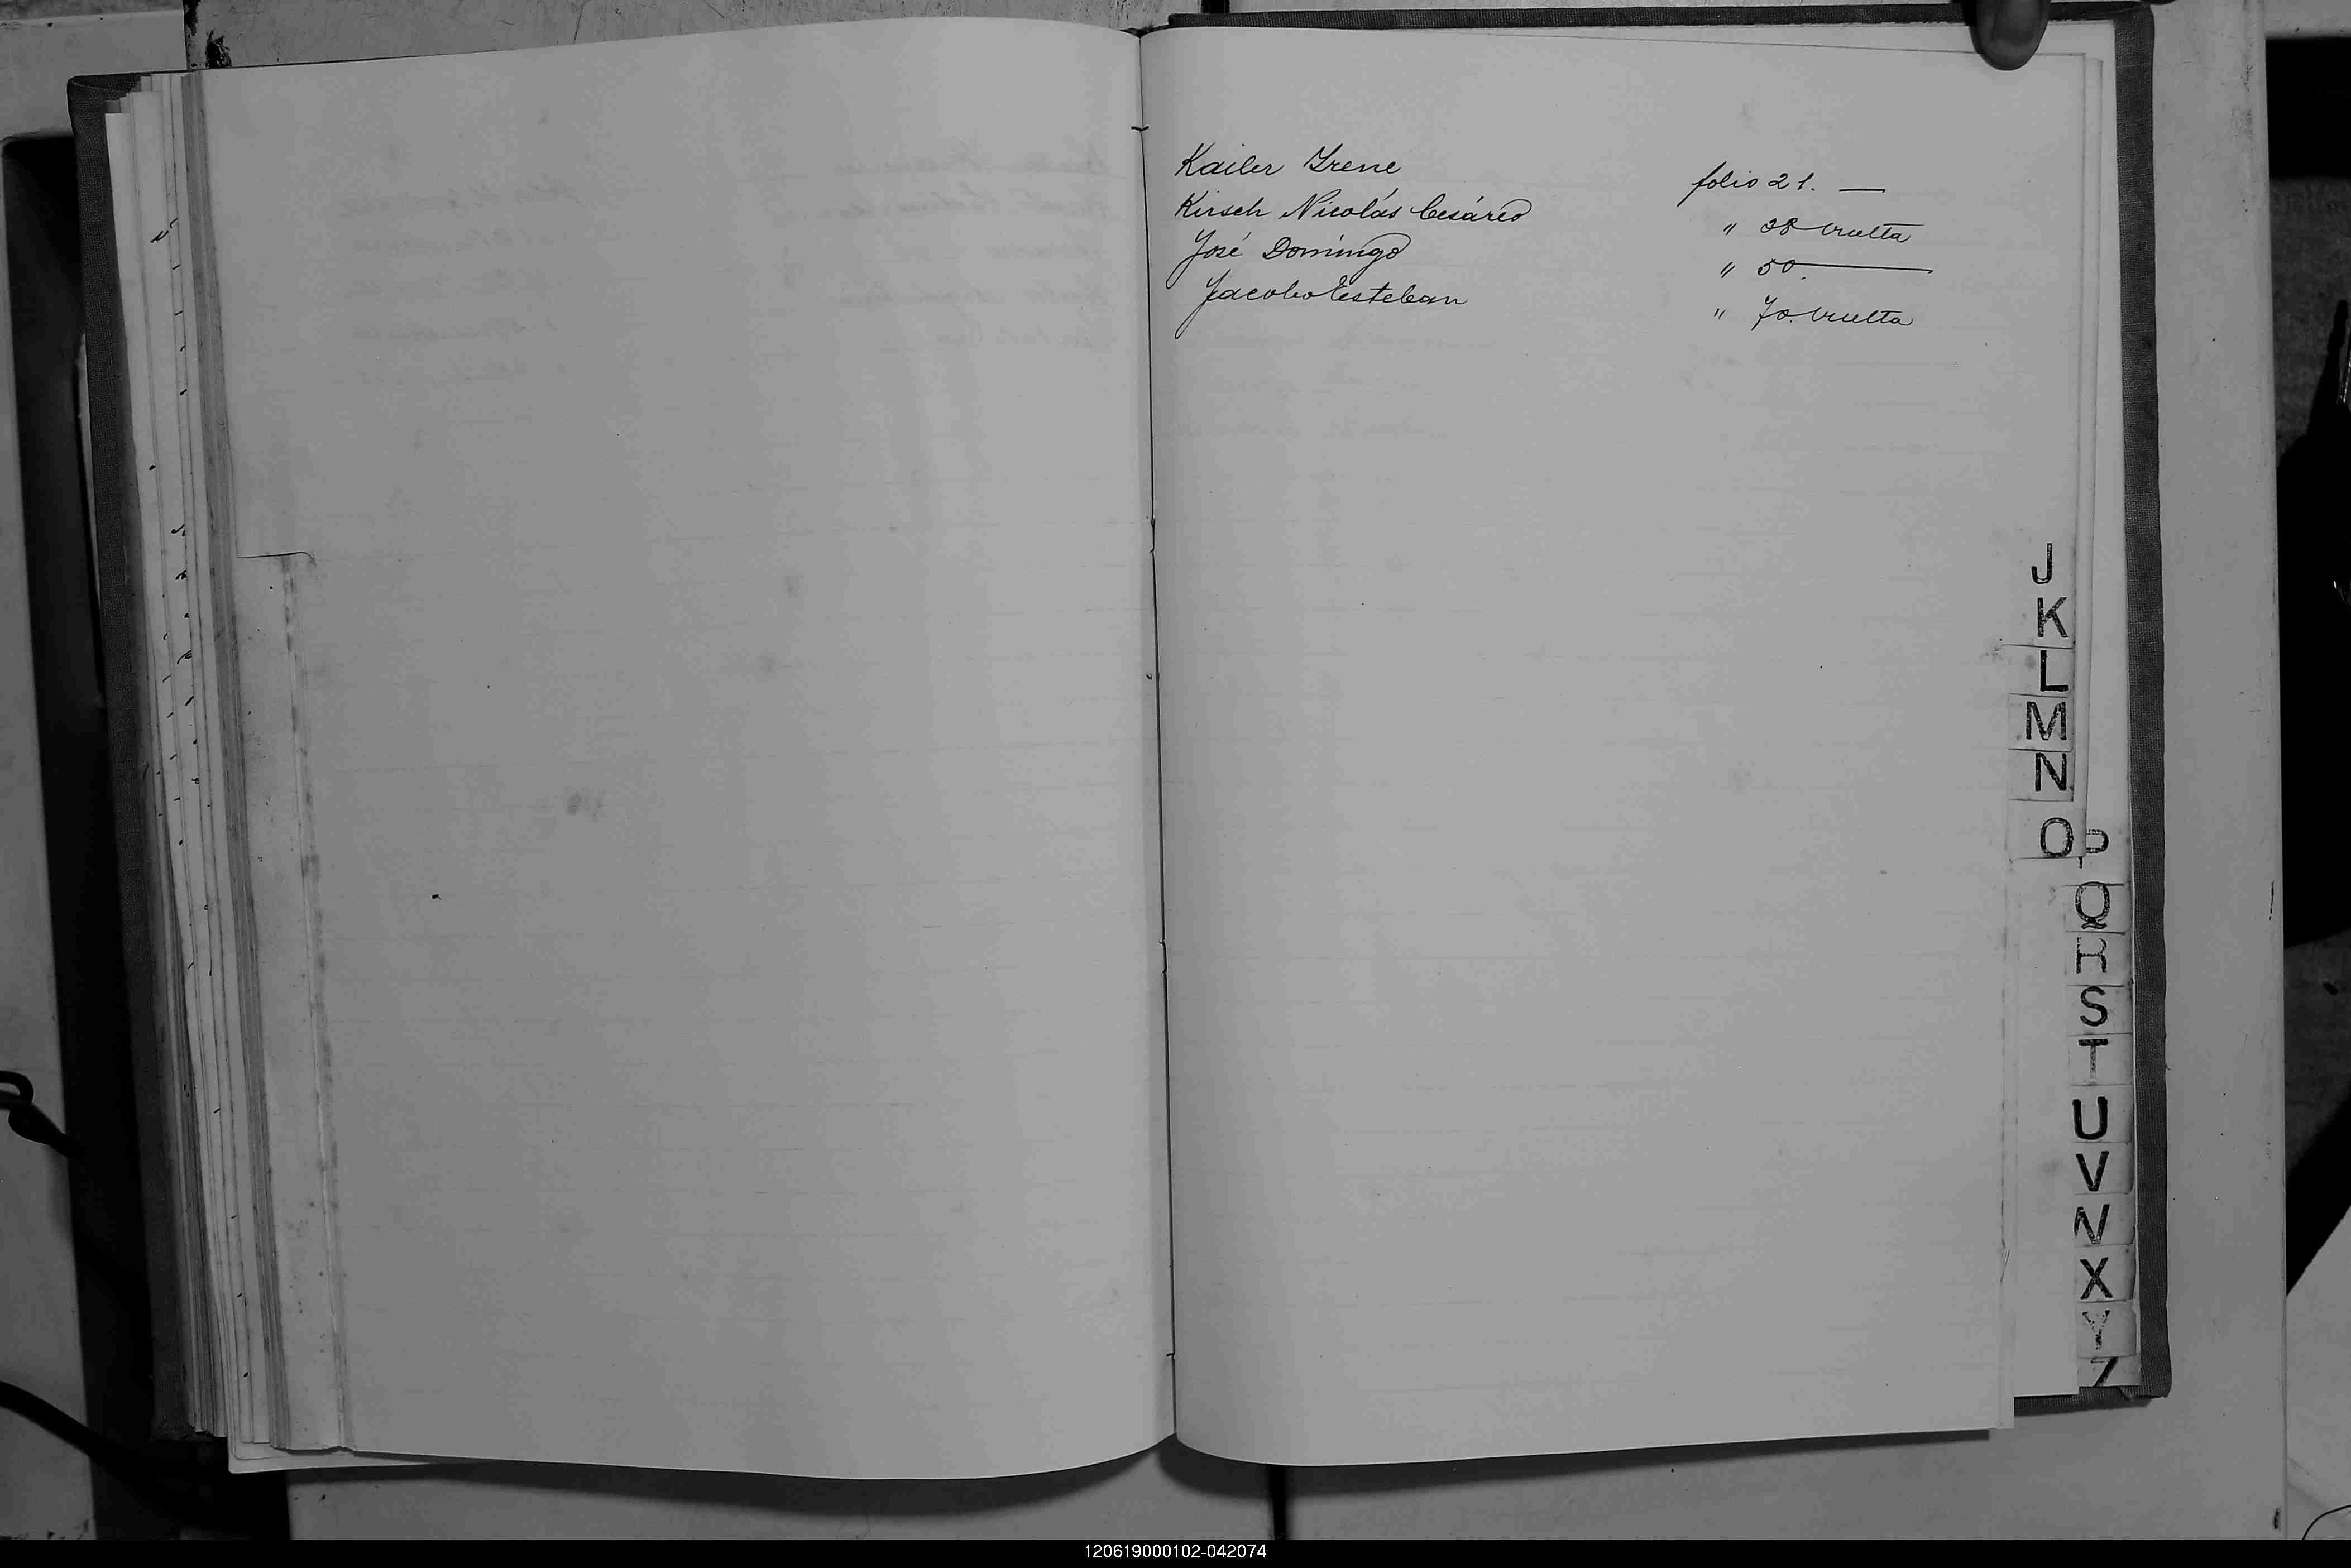 Kailer Irene folio 21. —
Kirsch Nicolás Cesáreo " 38 vuelta
José Domingo " 50.
Jacobo Esteban " 70. vuelta
J
K
L
M
N
O
P
Q
R
S
T
U
V
W
X
Y
Z
120619000102-042074